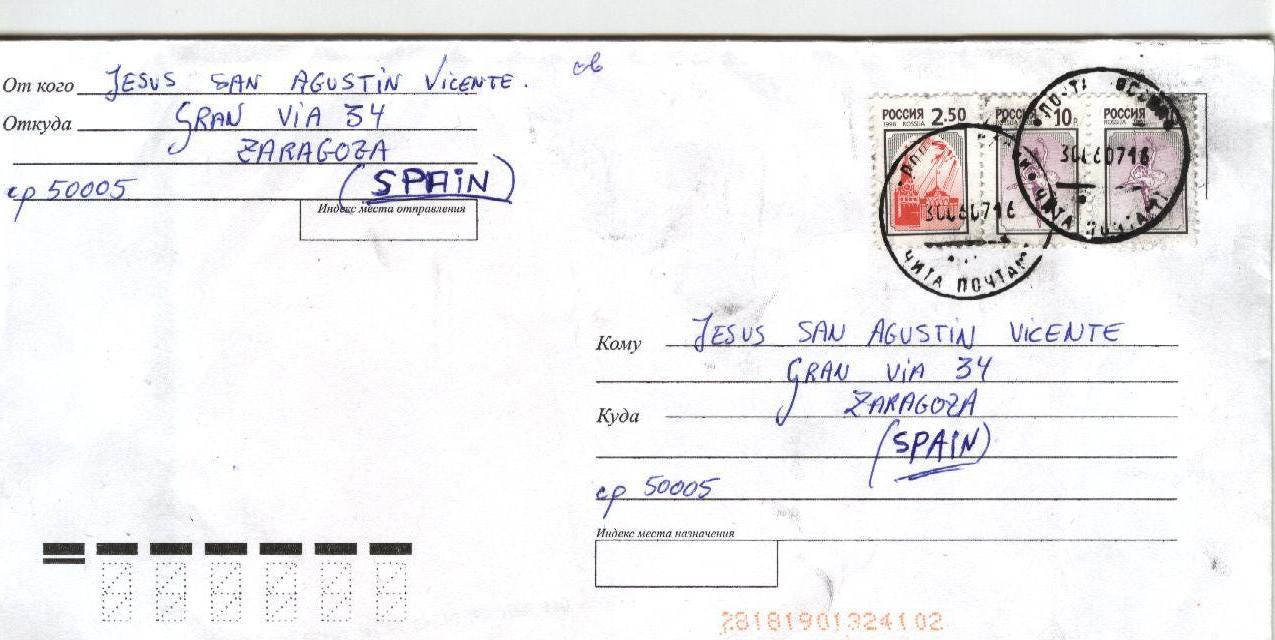 От кого JESUS SAN AGUSTIN VICENTE.
Откуда GRAN VIA 34
ZARAGOZA
cp 50005 (SPAIN)
Индекс места отправления
РОССИЯ 2.50
1998 ROSSIJA
РОССИЯ 10р
РОССИЯ
30060716
ЧИТА ПОЧТАМТ
30060716
ЧИТА ПОЧТАМТ
Кому JESUS SAN AGUSTIN VICENTE
GRAN VIA 34
Куда ZARAGOZA
(SPAIN)
cp 50005
Индекс места назначения
28181901324102